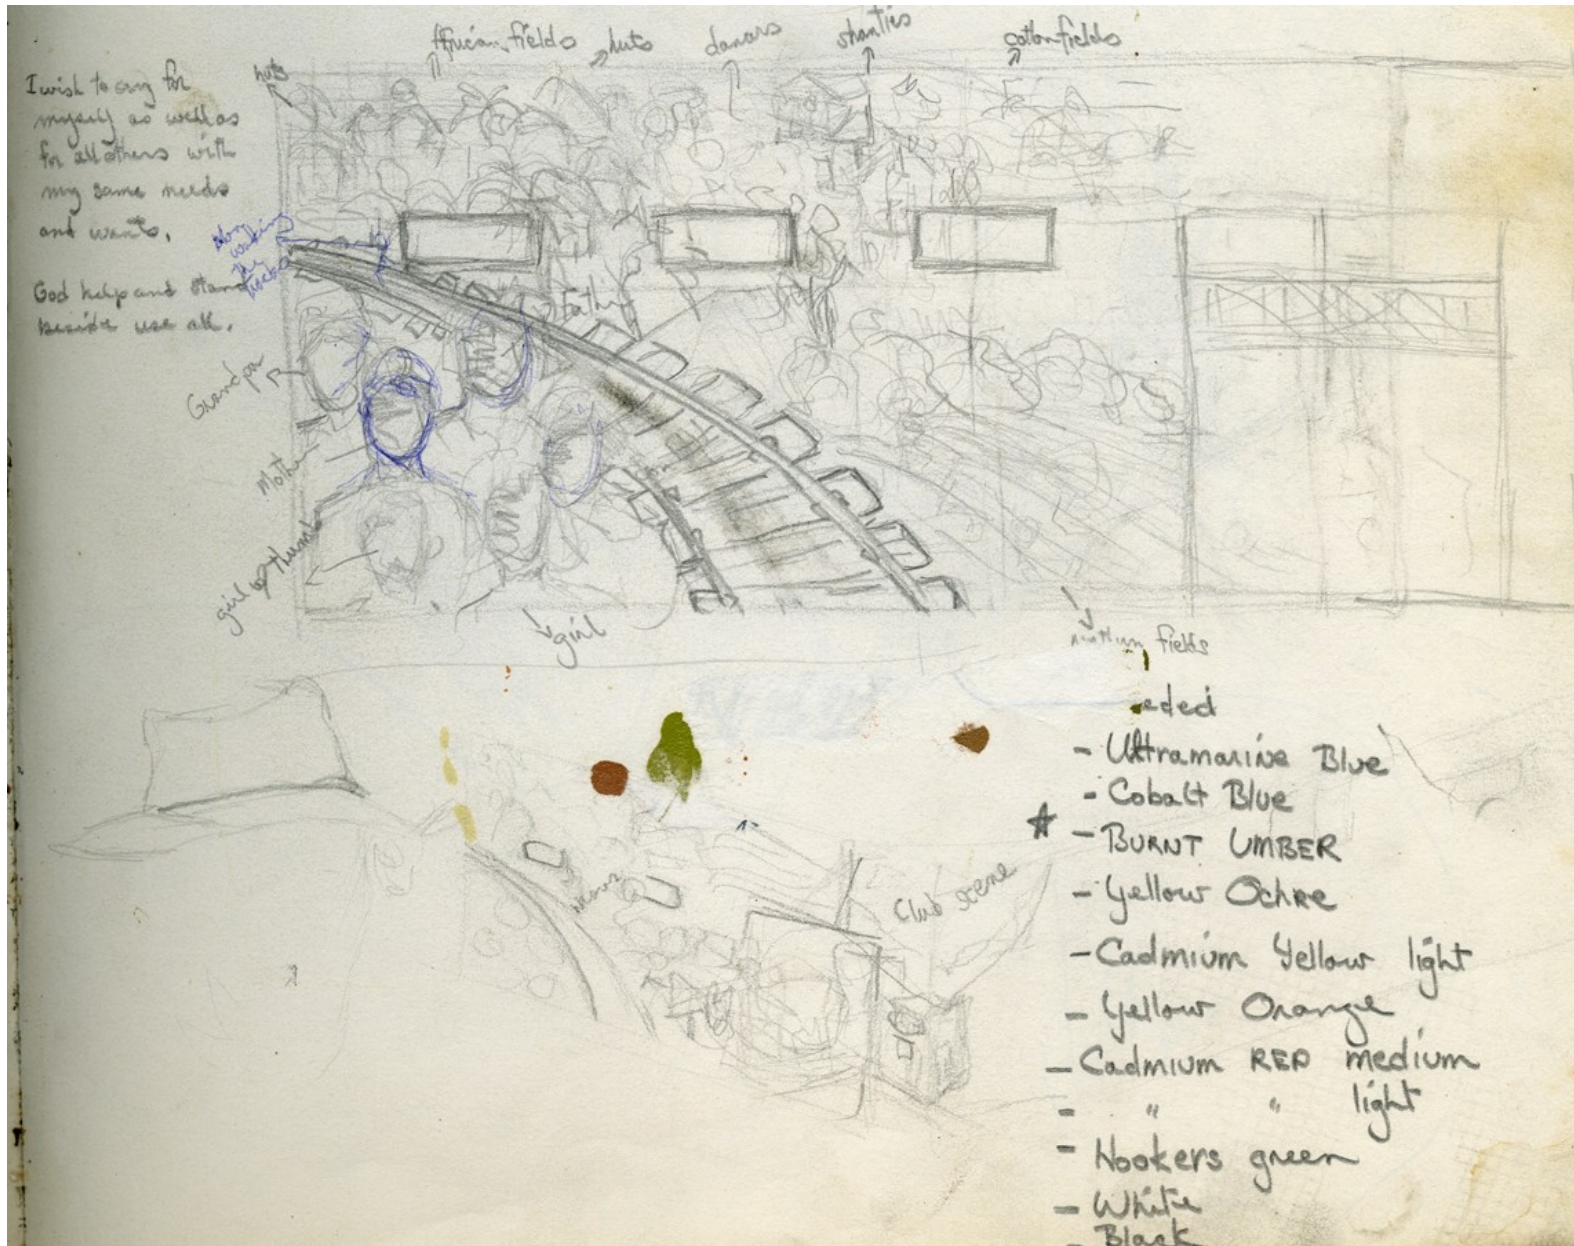 African fields
huts
dancers
shanties
cotton fields
huts
I wish to cry for
myself as well as
for all others with
my same needs
and wants.
God help and stand
beside use all.
Man
walking
the
tracks
Father
Grandpa
Mother
girl w/ thumb
girl
fields
eded
- Ultramarine Blue
- Cobalt Blue
- BURNT UMBER
- Yellow Ochre
- Cadmium Yellow light
- Yellow Orange
- Cadmium RED medium
- " " light
- Hookers green
- White
- Black
Club scene